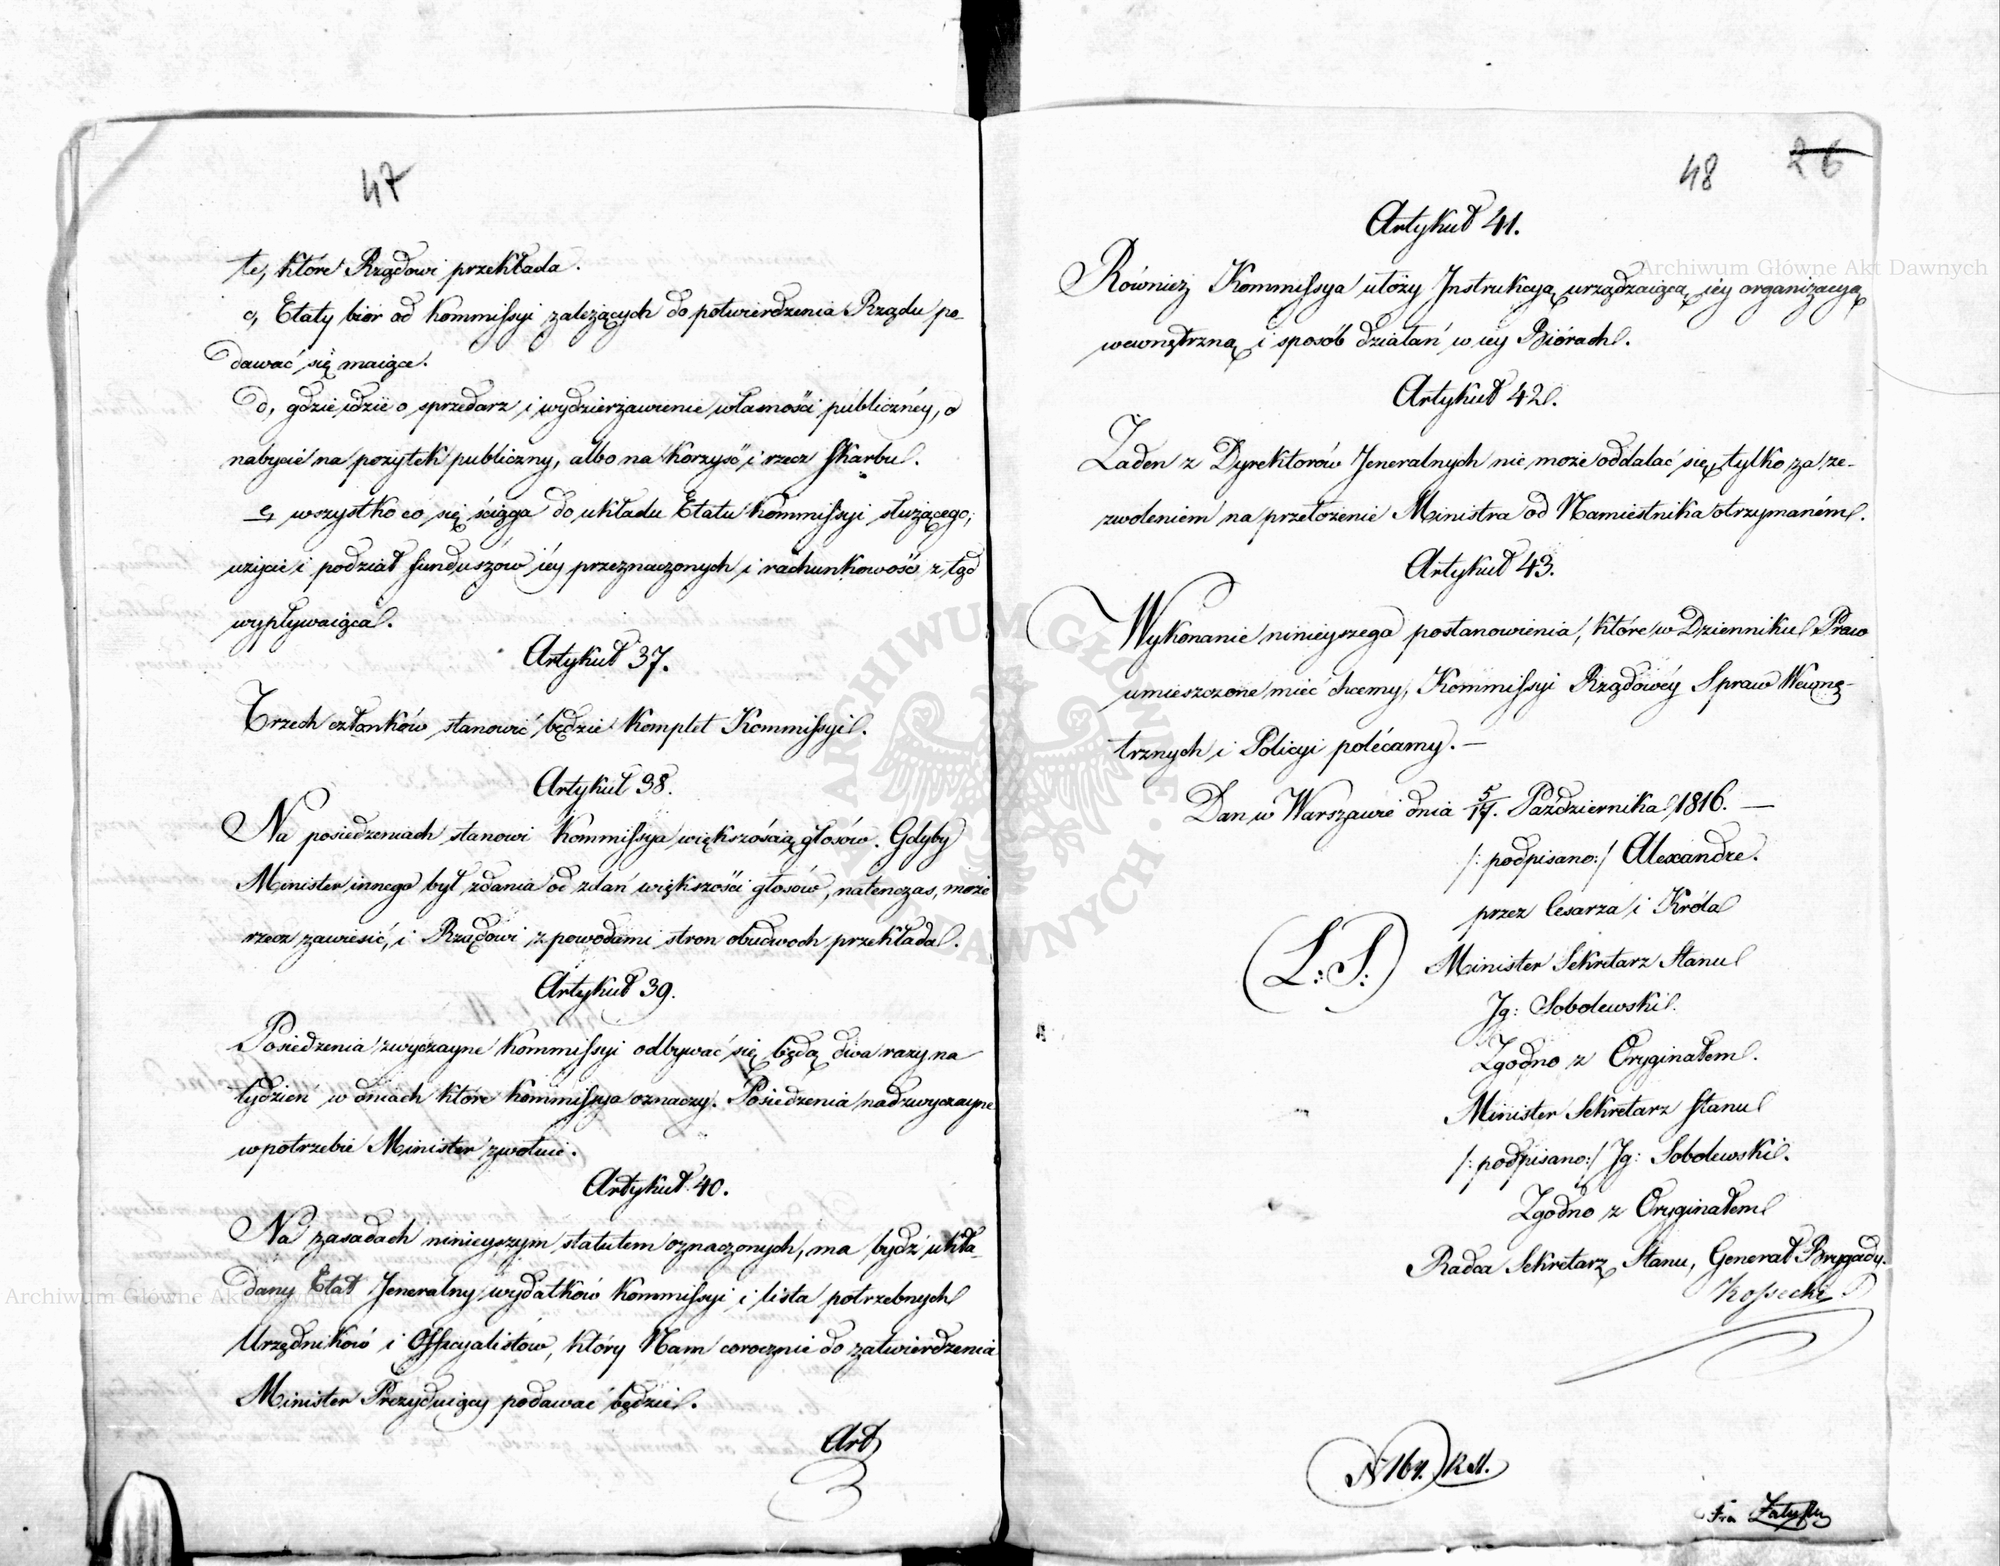 47
te, które Rządowi przekłada.
c, Etaty biór od Kommissyi zależących do potwierdzenia Rządu po-
dawać się maiące.
d, gdzie idzie o sprzedarz i wydzierżawienie własności publiczney, o
nabycie na pożytek publiczny, albo na korzyść i rzecz Skarbu.
e, wszystko co się ściąga do układu Etatu Kommissyi służącego;
użycie i podział funduszów iéy przeznaczonych i rachunkowość z tąd
wypływaiąca.
Artykuł 37.
Trzech członków stanowić będzie komplet Kommissyi.
Artykuł 38.
Na posiedzeniach stanowi Kommissya większością głosów. Gdyby
Minister innego był zdania od zdań większości głosów, natenczas, może
rzecz zawiesić, i Rządowi z powodami stron obudwoch przekłada.
Artykuł 39.
Posiedzenia zwyczayne Kommissyi odbywać się będą dwa razy na
tydzień w dniach które Kommissya oznaczy. Posiedzenia nadzwyczayne
w potrzebie Minister zwołuie.
Artykuł 40.
Na zasadach ninieyszym statutem oznaczonych, ma bydź ukła-
dany Etat Jeneralny wydatków Kommissyi i lista potrzebnych
Urzędników i Officyalistów, który Nam corocznie do zatwierdzenia
Minister Prezyduiący podawać będzie.
Art
48 26
Artykuł 41.
Również Kommissya ułoży Instrukcyą urządzaiącą iey organizacyą
wewnętrzną i sposób działań w iey Biórach.
Artykuł 42.
Żaden z Dyrektorów Jeneralnych nie może oddalać się, tylko za ze-
zwoleniem na przełożenie Ministra od Namiestnika otrzymaném.
Artykuł 43.
Wykonanie ninieyszego postanowienia, które w Dzienniku Praw
umieszczone mieć chcemy, Kommissyi Rządowéy Spraw Wewnę-
trznych i Policyi polécamy. —
Dan w Warszawie dnia 5/17. Października 1816. —
/: podpisano:/ Alexandre.
przez Cesarza i Króla
(L: S:)
Minister Sekretarz Stanu
Jg: Sobolewski.
Zgodno z Oryginałem.
Minister Sekretarz Stanu
/: podpisano:/ Jg: Sobolewski.
Zgodno z Oryginałem
Radca Sekretarz Stanu, Generał Brygady.
Kossecki
Archiwum Główne Akt Dawnych
ARCHIWUM GŁÓWNE AKT DAWNYCH
Archiwum Główne Akt Dawnych